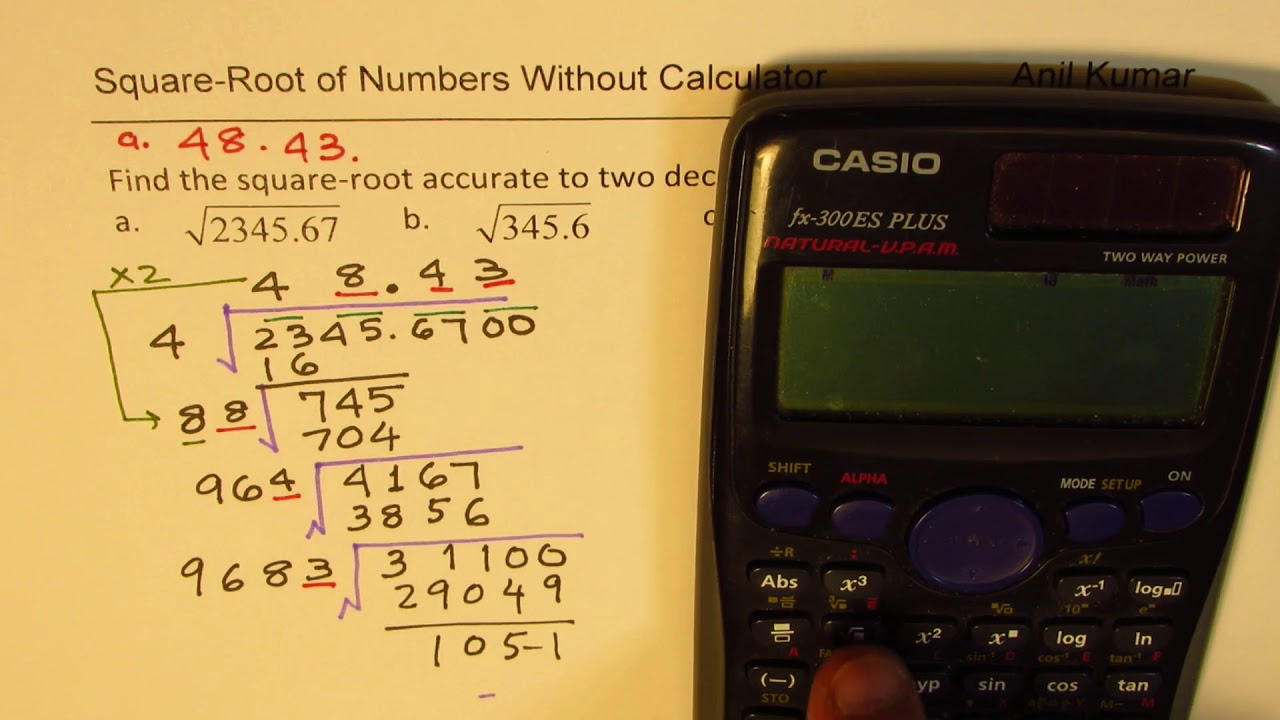 Square-Root of Numbers Without Calculator Anil Kumar
a. 48.43.
Find the square-root accurate to two dec
a. √2345.67 b. √345.6 c
×2 4 8.43
4 √2345.6700
16
88 √745
704
964 √4167
3856
9683 √31100
29049
105-1
CASIO
fx-300ES PLUS
NATURAL-V.P.A.M.
TWO WAY POWER
M Math
SHIFT ALPHA MODE SETUP ON
÷R : x!
Abs x³ x⁻¹ log
x² x■ log ln
A sin⁻¹ D cos⁻¹ E tan⁻¹ F
(−) yp sin cos tan
STO M− M